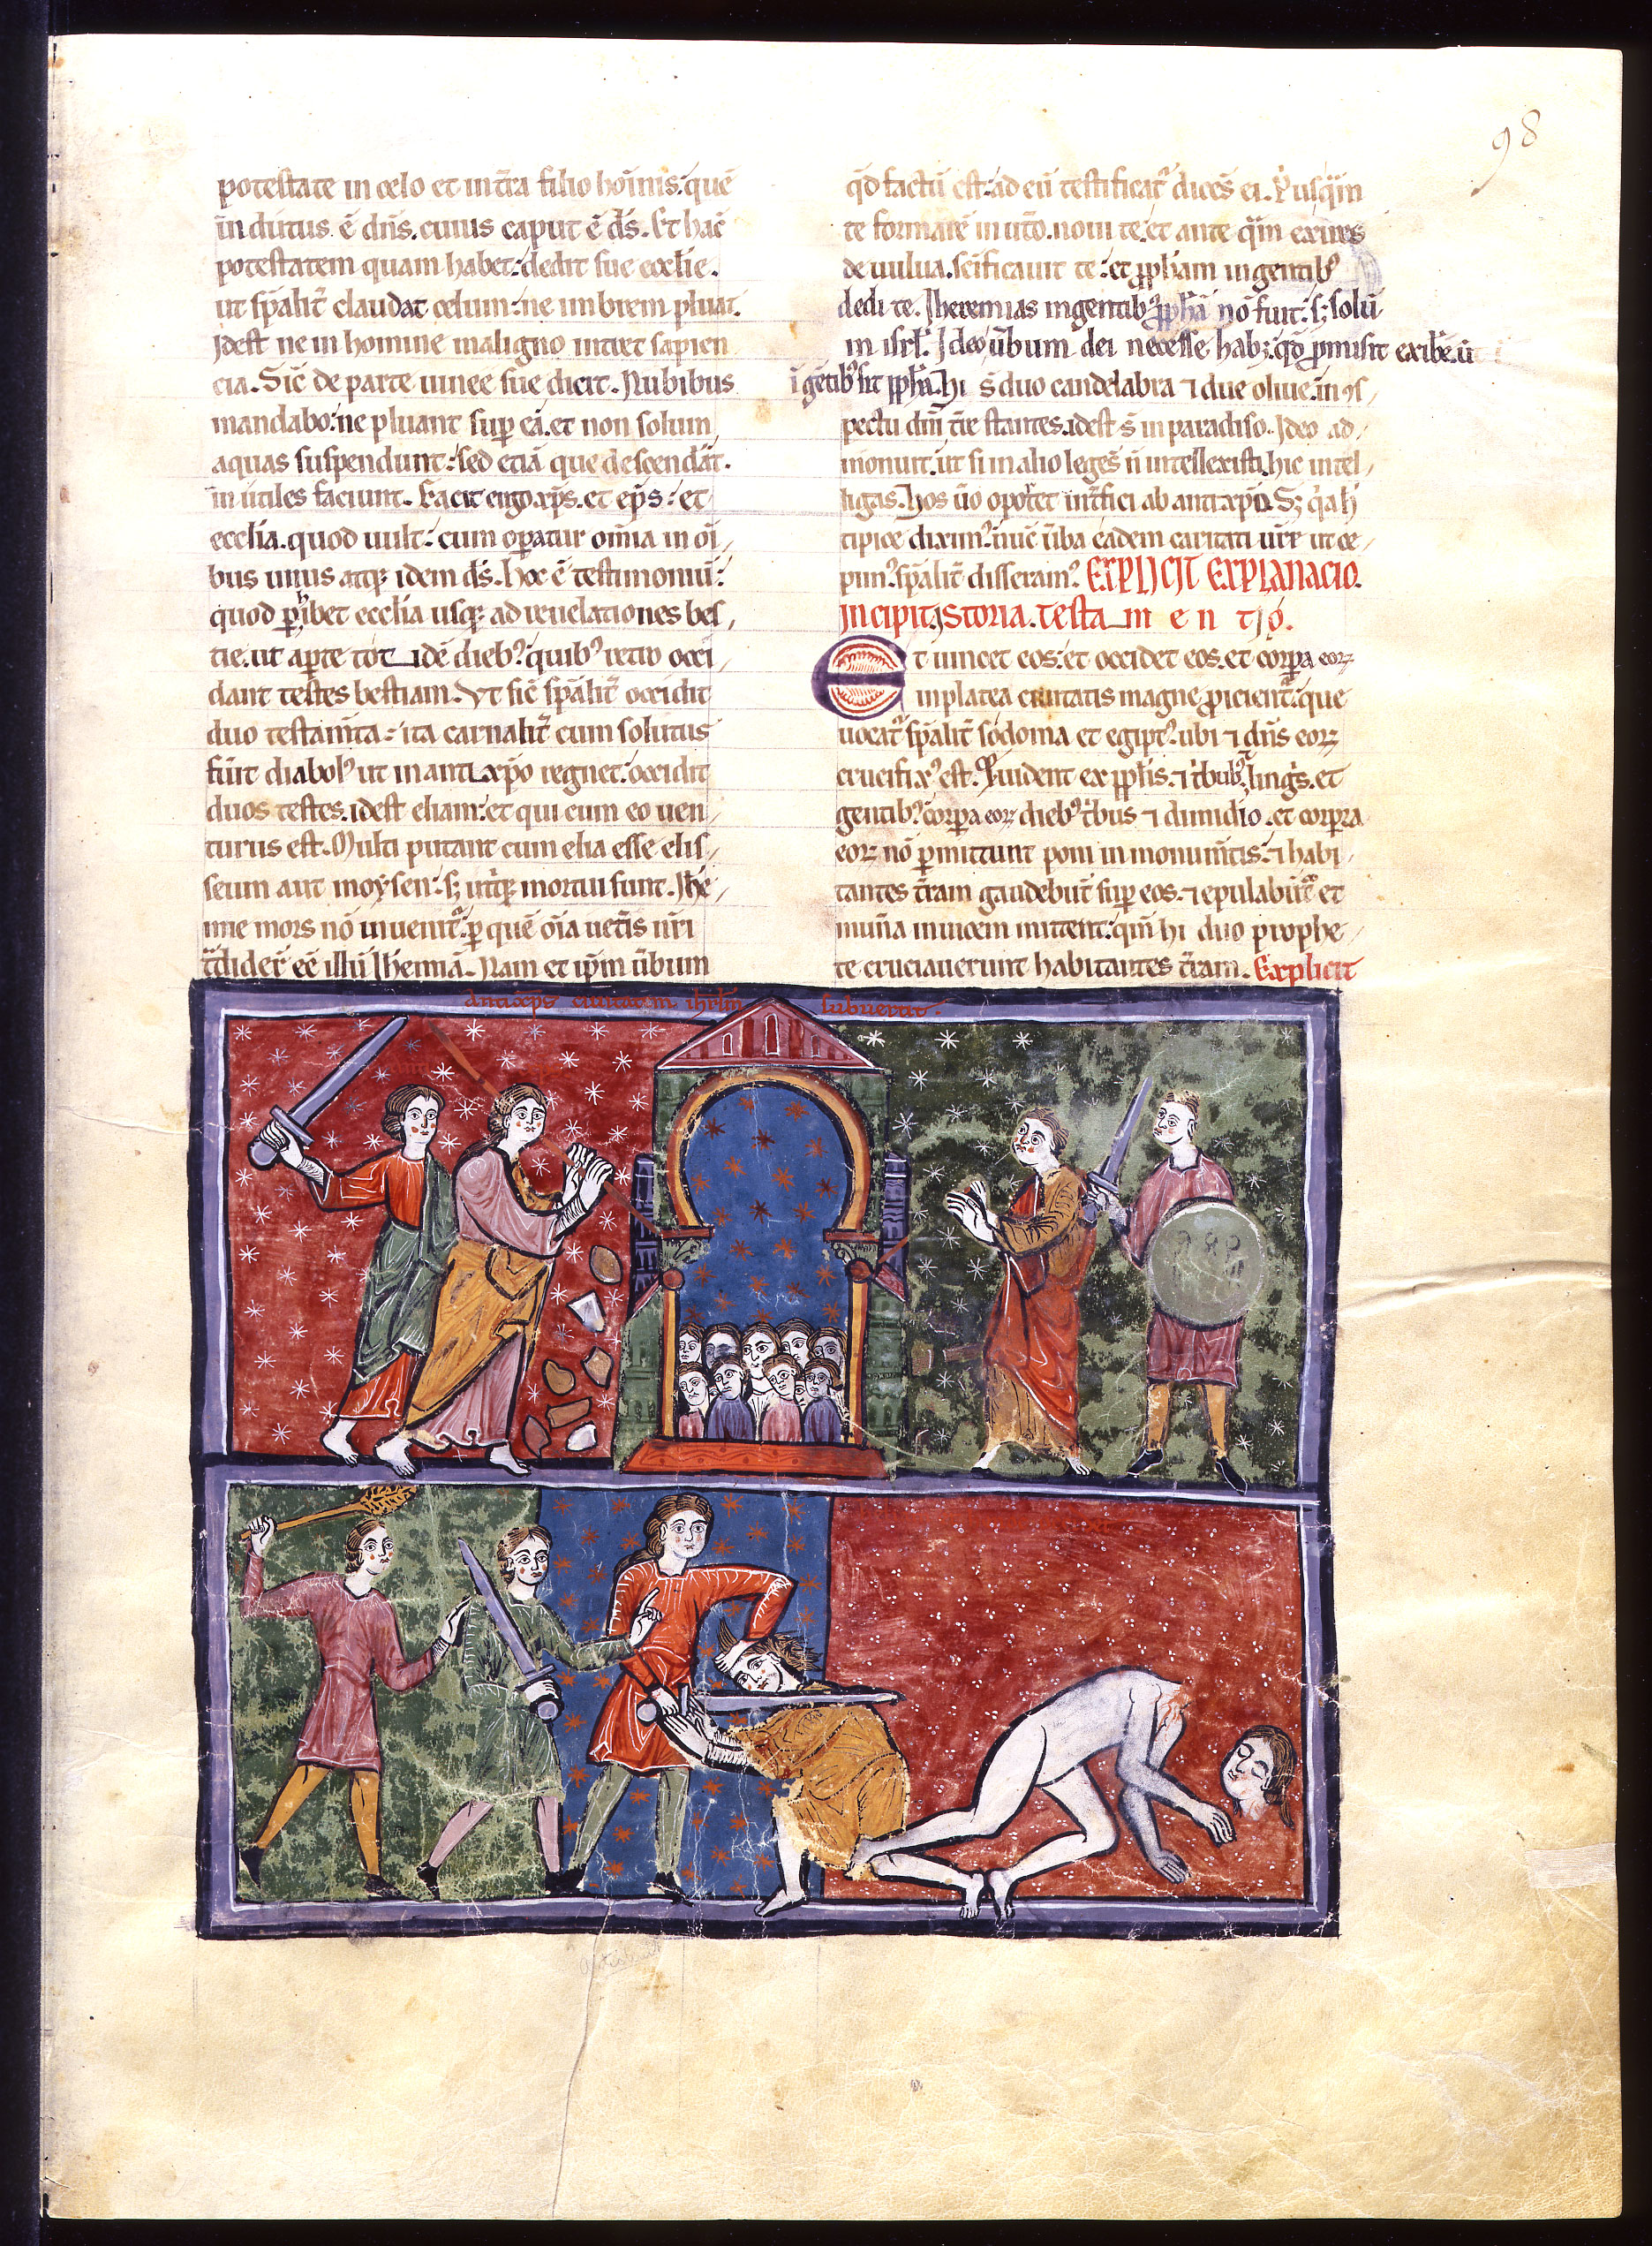 98
potestate in celo et in t̄ra filio hoı̄nis. quē
in dutus ē dn̄s. cuius caput ē d̄s. Et hac̄
potestatem quam habet: dedit sue ecclīe.
ut sp̄alit̄ claudat celum: ne imbrem pluat.
Idest ne in homine maligno intret sapien
cia. Sic̄ de parte uinee sue dicit. Nubibus
mandabo: ne pluant sup̄ eā. et non solum
aquas suspendunt: sed etiā que descendāt.
in utiles faciunt. Facit ergo xp̄s. et ep̄s: et
ecclīa. quod uult: cum opatur om̄ia in oı̄
bus unus atq; idem d̄s. Hoc ē testimoniū:
quod phibet ecclīa usq; ad reuelationes bes
tie. ut aperte tot idē dieb᾽. quib᾽ occi
dant testes bestiam. Vt sic̄ sp̄alit̄ occidit
duo testam̄ta: ita carnalit̄ cum solutus
fūit diabol᾽ ut in antixp̄o regnet. occidit
duos testes. idest eliam: et qui cum eo uen
turus est. Multi putant cum elia esse elis
seum aut moysen: s; utq; mortui sunt. Jhe
mie mors nō inuenit᾽. p quē om̄ia uet̄is nr̄i
t̄dider̄ eē illū Iheremiā. Nam et ip̄m ūbum
qd̄ factū est: ad eū testificat᾽ dicēs ei. P'usq̄m
te formarē in ut̄o. noui te: et ante q̄m exires
de uulua. sc̄ificauit te: et p̄ph̄am in gentib᾽
dedi te. Jheremias in gentib᾽ p̄ph̄a nō fuit. s; solū
in isrl̄. Ideo ūbum dei necesse hab; qd̄ pmisit exibe. ū
ı̄ gētib᾽ sit p̄ph̄a. Hi s̄ duo candelabra ⁊ due oliue. in ꝯs
pectu dn̄i t̄re stantes. idest s̄ in paradiso. Ideo ad
monuit. ut si in alio leges n̄ intellexisti. hic intel
ligas. Hos ūo oportet int̄fici ab antixp̄o. S; q᾽a h᾽
tipice diximˀ. nūc ūba eadem caritati ur̄e ut ce
pimˀ. sp̄alit̄ disseramˀ. EXPLICIT EXPLANACIO.
Incipit istoria. testa m e n t i o.
Et uincet eos: et occidet eos. et corpa eoꝝ
in platea ciuitatis magne pıcient᾽: que
uocat᾽ sp̄alit̄ sodoma et egipt᾽. ubi ⁊ dn̄s eoꝝ
crucifix᾽ est. Et uident ex pp̄lis. ⁊ t̄bub᾽. ⁊ lingˀs. et
gentib᾽. corpa eoꝝ dieb᾽ t̄bus ⁊ dimidio. et corpora
eoꝝ nō pmittunt poni in monum̄tis. ⁊ habi
tantes t̄ram gaudebūt sup̄ eos. ⁊ epulabūt᾽. et
mun̄a inuicem mittent: qm̄ hi duo prophe
te cruciauerunt habitantes t̄ram. Explicit
Antixp̄s ciuitatem ihrl̄m subuertit.